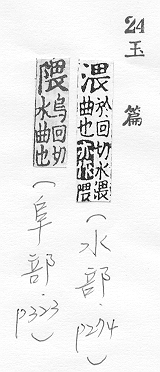 24
玉篇
渨 於回切水渨曲也亦作隈
(水部. p274)
隈 烏回切水曲也
(阜部. p323)